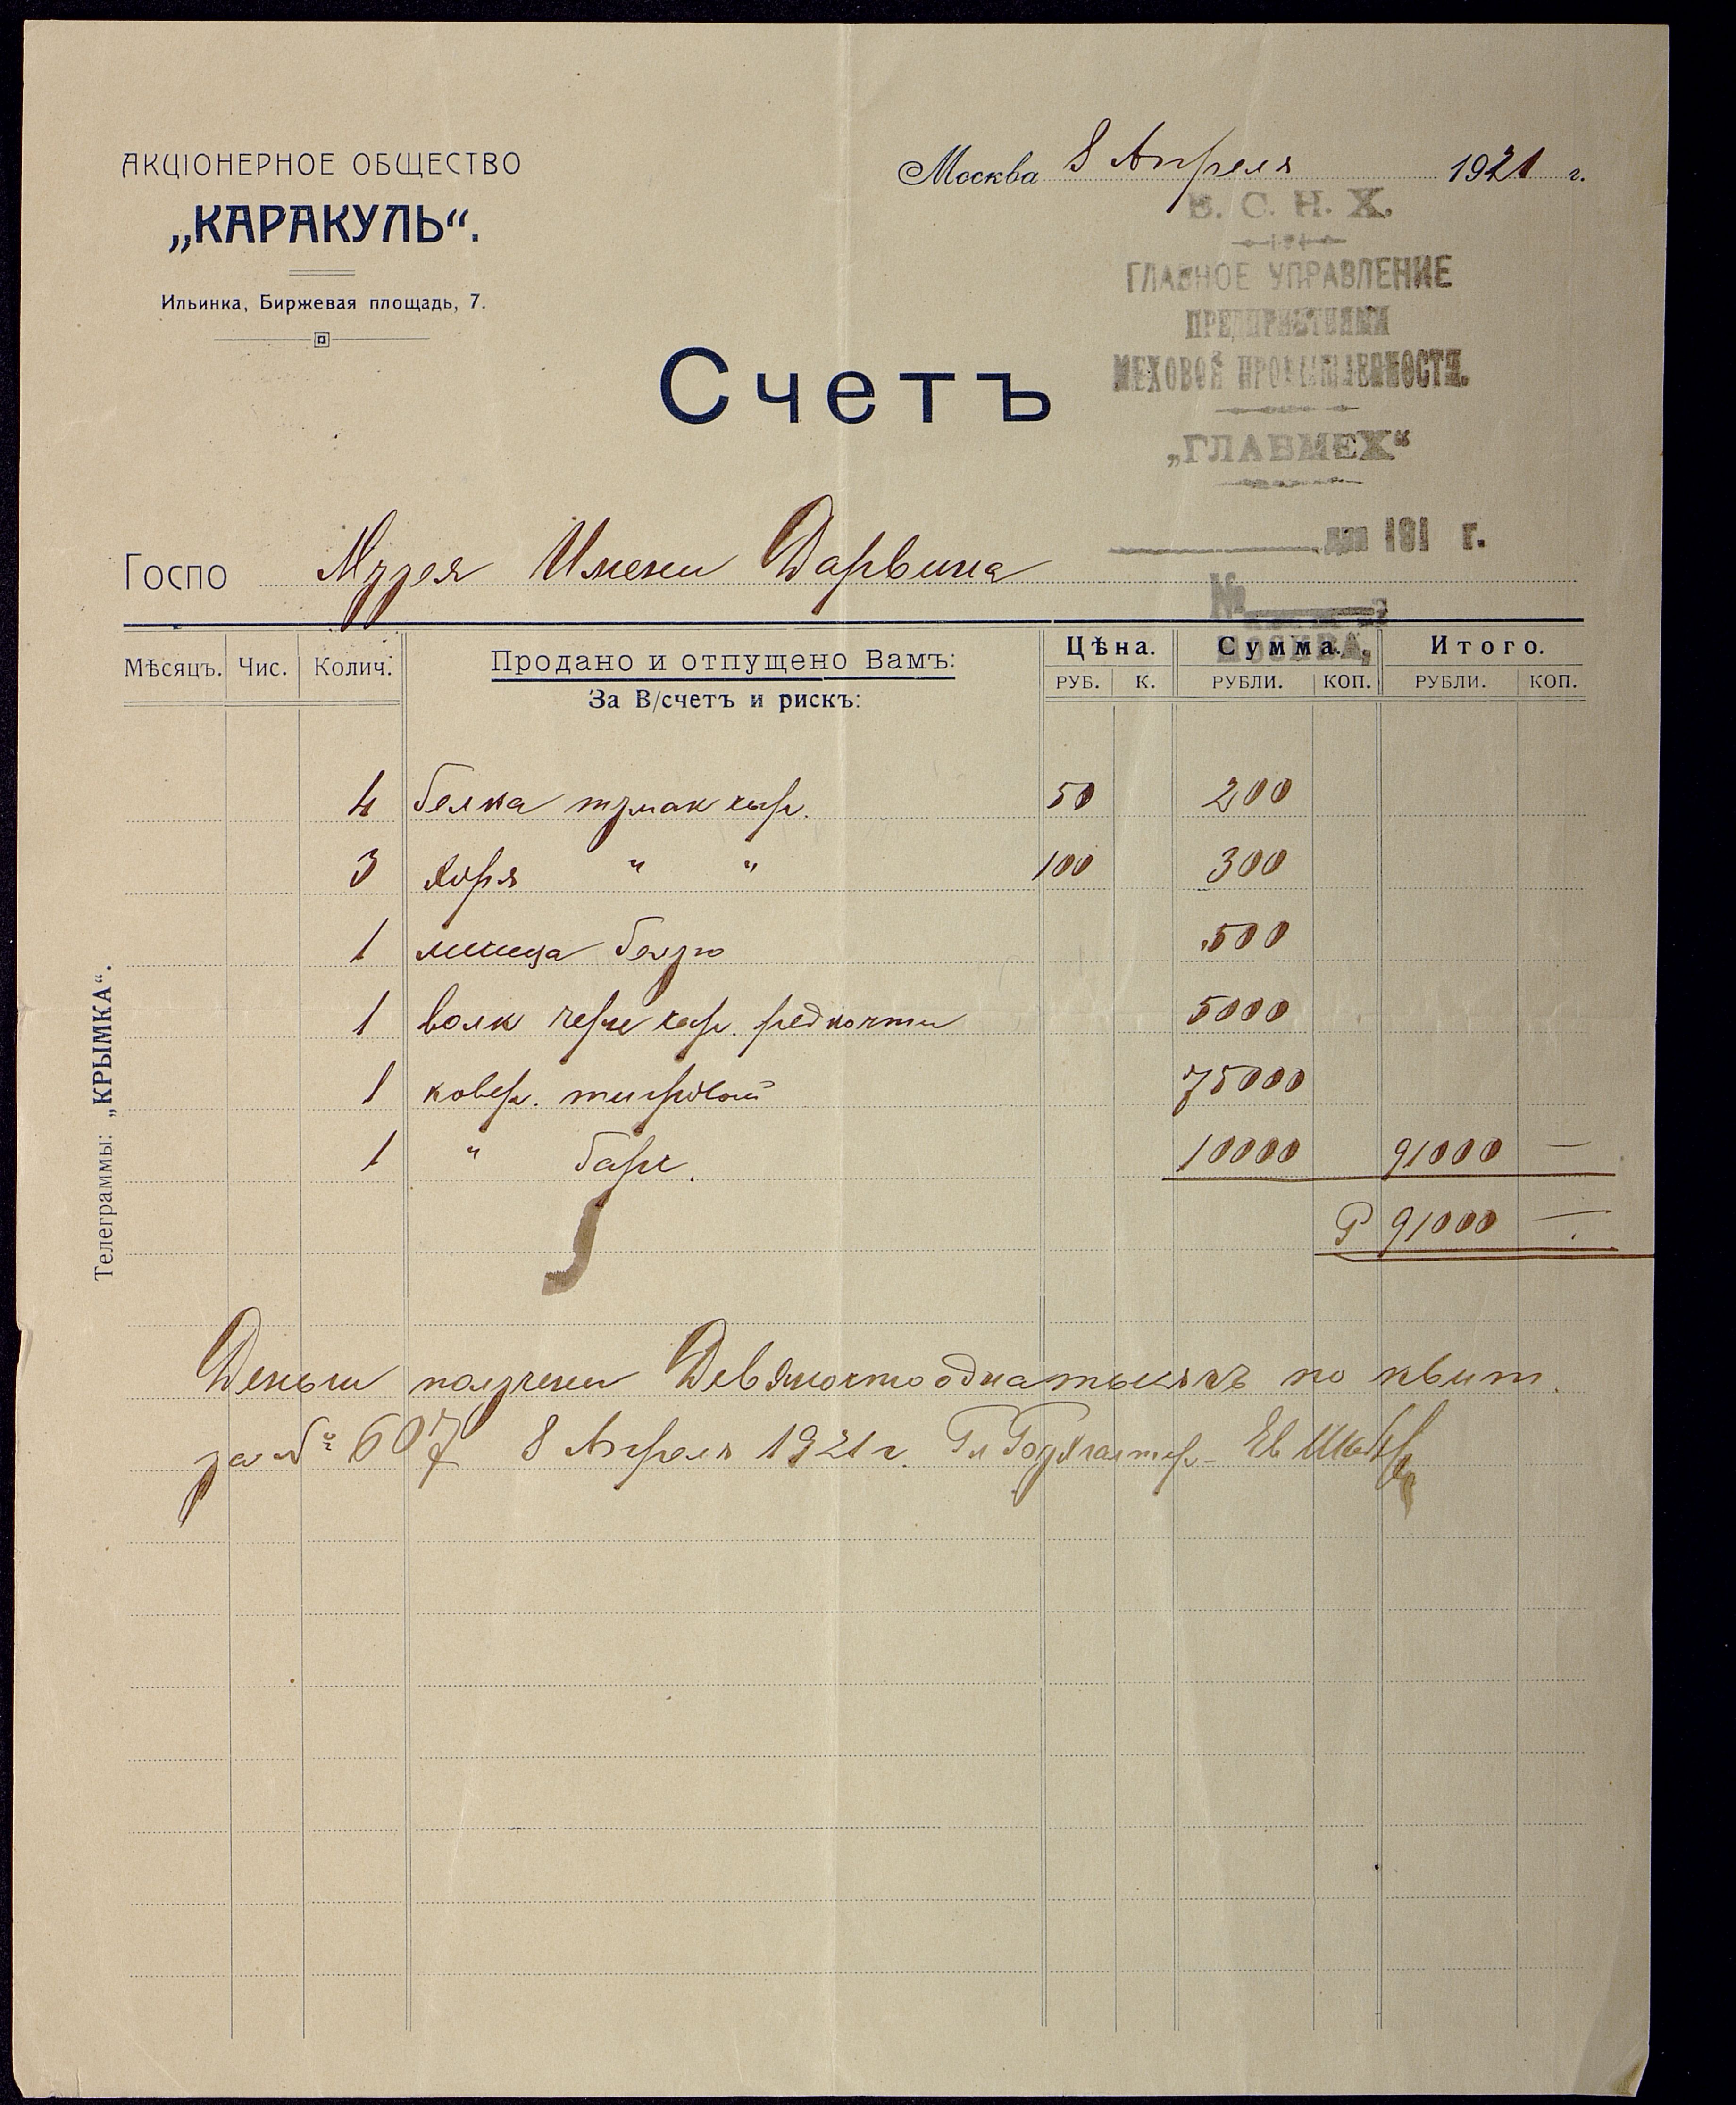 АКЦІОНЕРНОЕ ОБЩЕСТВО
„КАРАКУЛЬ“.
Ильинка, Биржевая площадь, 7.
Москва 8 Апреля 1921 г.
В. С. Н. Х.
ГЛАВНОЕ УПРАВЛЕНИЕ
ПРЕДПРИЯТИЯМИ
МЕХОВОЙ ПРОМЫШЛЕННОСТИ.
„ГЛАВМЕХ“
дня 191 г.
№
МОСКВА,
Счетъ
Госпо Музея Имени Дарвина
Мѣсяцъ. Чис. Колич. Продано и отпущено Вамъ: Цѣна. Сумма. Итого.
За В/счетъ и рискъ: РУБ. К. РУБЛИ. КОП. РУБЛИ. КОП.
4 белка 50 200
3 Хоря " " 100 300
1 500
1 волк 5000
1 ковер. тигровый 75000
1 " барс. 10000 91000 —
Р 91000 —
Телеграммы: „КРЫМКА“.
Деньги получени Девяносто одна тысячъ по квит.
за № 607 8 Апреля 1921 г. Гл Бухгалтер